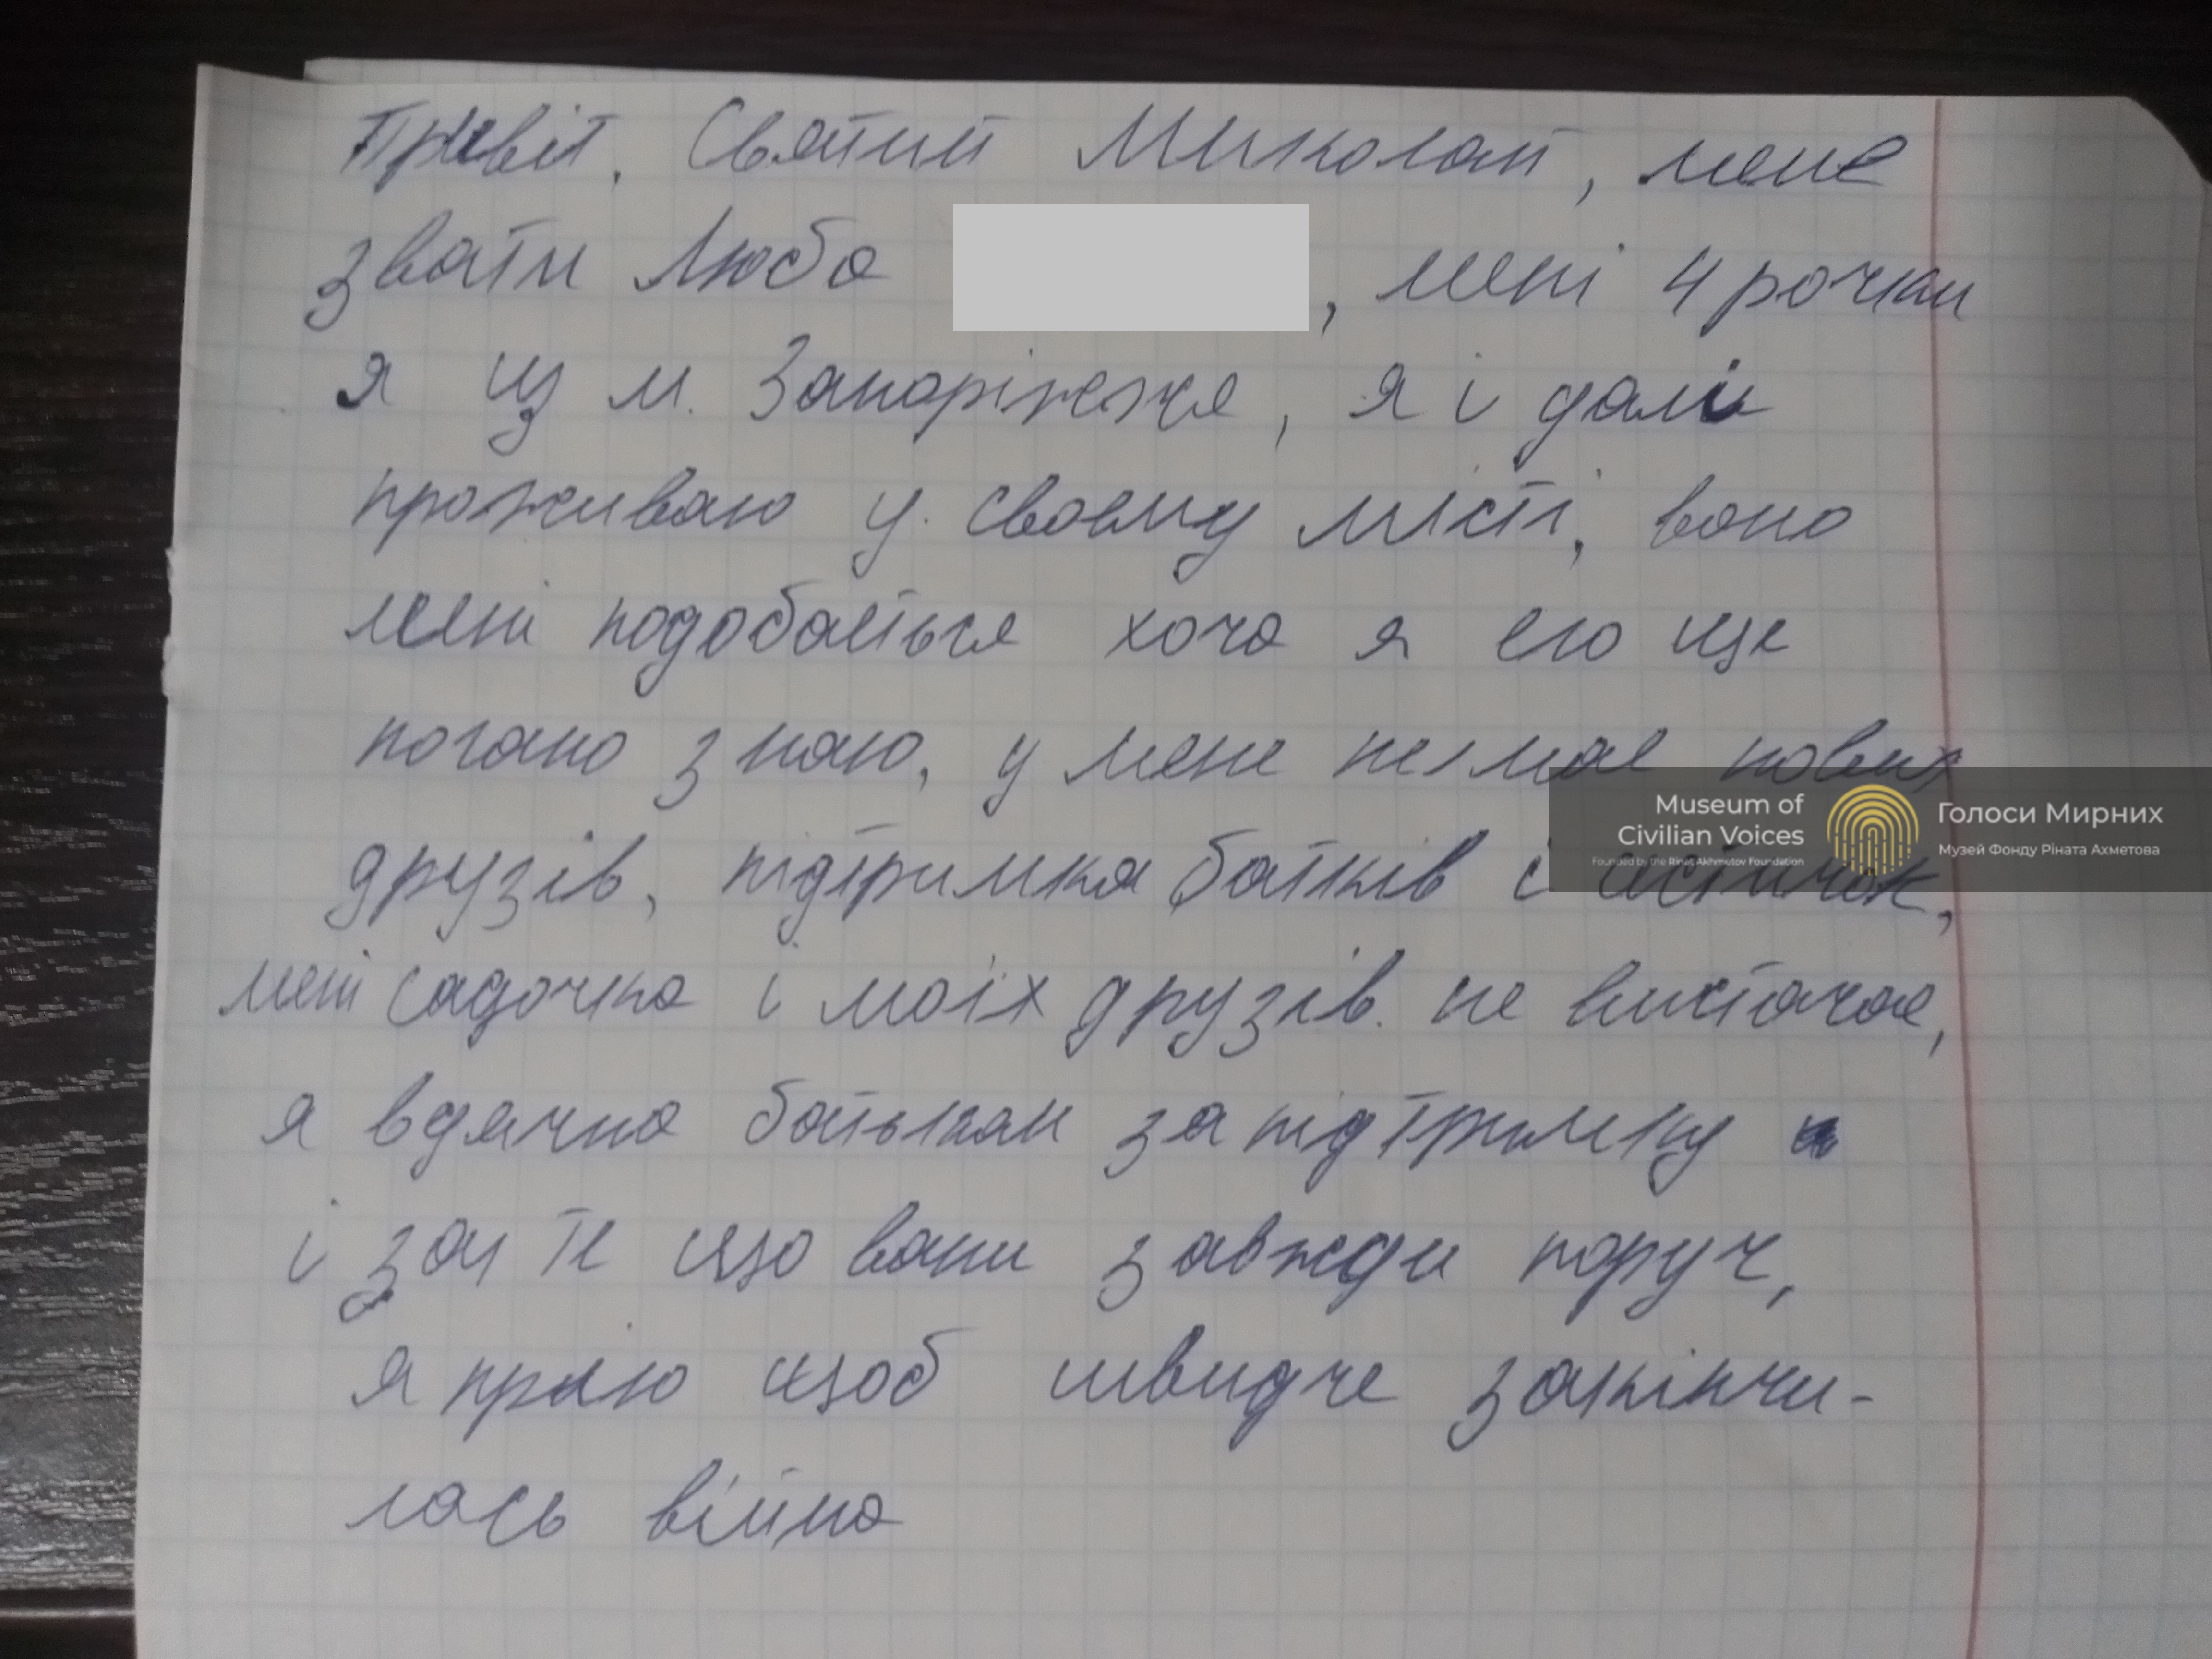 Привіт, Святий Миколай, мене
звати Люба , мені 4 рочки
я із м. Запоріжжя, я і далі
проживаю у своєму місті, воно
мені подобається хоча я его ще
погано знаю, у мене немає нових
друзів, підтримка батків і сістичок,
мені садочка і моїх друзів не вистачає,
я вдячна батькам за підтримку
і за те що вони завжди поруч,
я мрію щоб швидче закінчи-
лась війна
Museum of
Civilian Voices
Founded by the Rinat Akhmetov Foundation
Голоси Мирних
Музей Фонду Ріната Ахметова